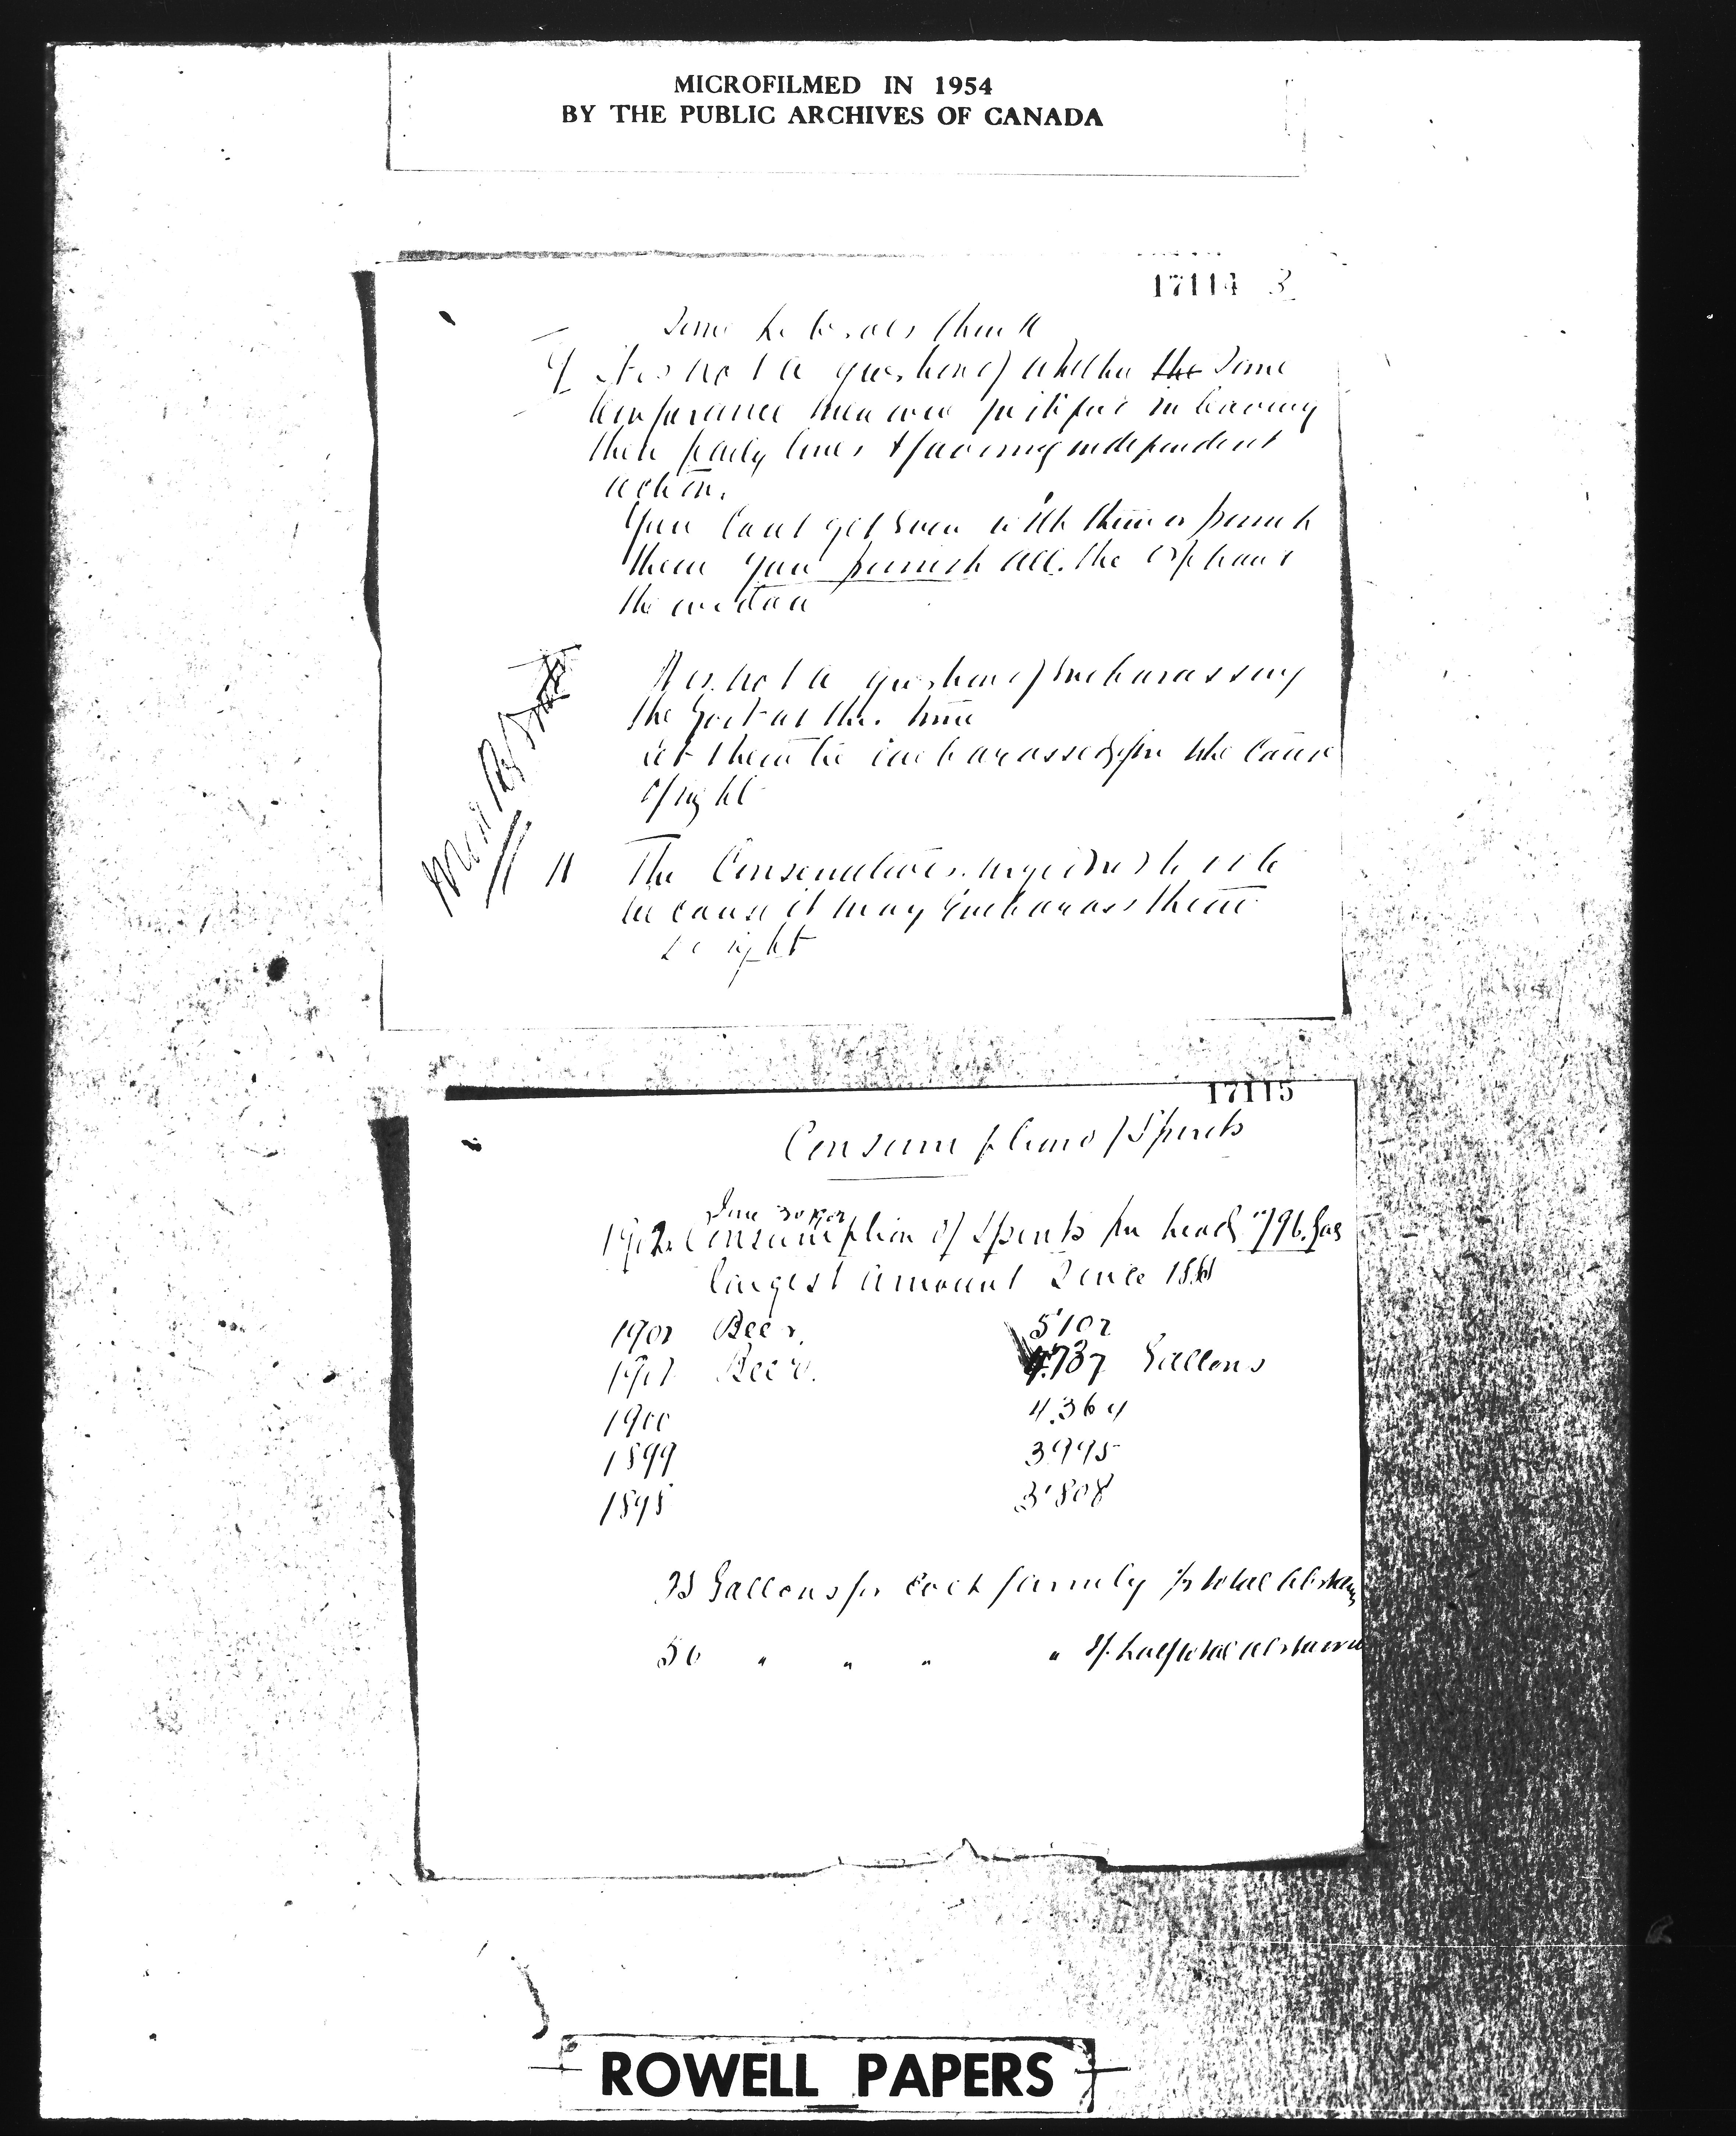 MICROFILMED IN 1954
BY THE PUBLIC ARCHIVES OF CANADA
17114 3
Some Liberals think
9 It is not a question of whether the some
temperance men were justified in leaving
their party lines & favoring independent
action.
You cant get even with them or punish
them you punish all. the orphans
the widow
It is not a question of embarassing
the Govt at this time
Let them be embarassed for the cause
of right
11 The Conservatives. urged us to vote
because it may embarass them
17115
Consumption of Spirits
June 30 1902
1902. Consumption of Spirits per head .796. Gas
largest amount Since 18
1902 Beer. 5102
1901 Beer. 4.737 Gallons
1900 4.364
1899 3.995
1898 3.808
25 Gallons for each family
50 " " " " if half total abstainers
ROWELL PAPERS